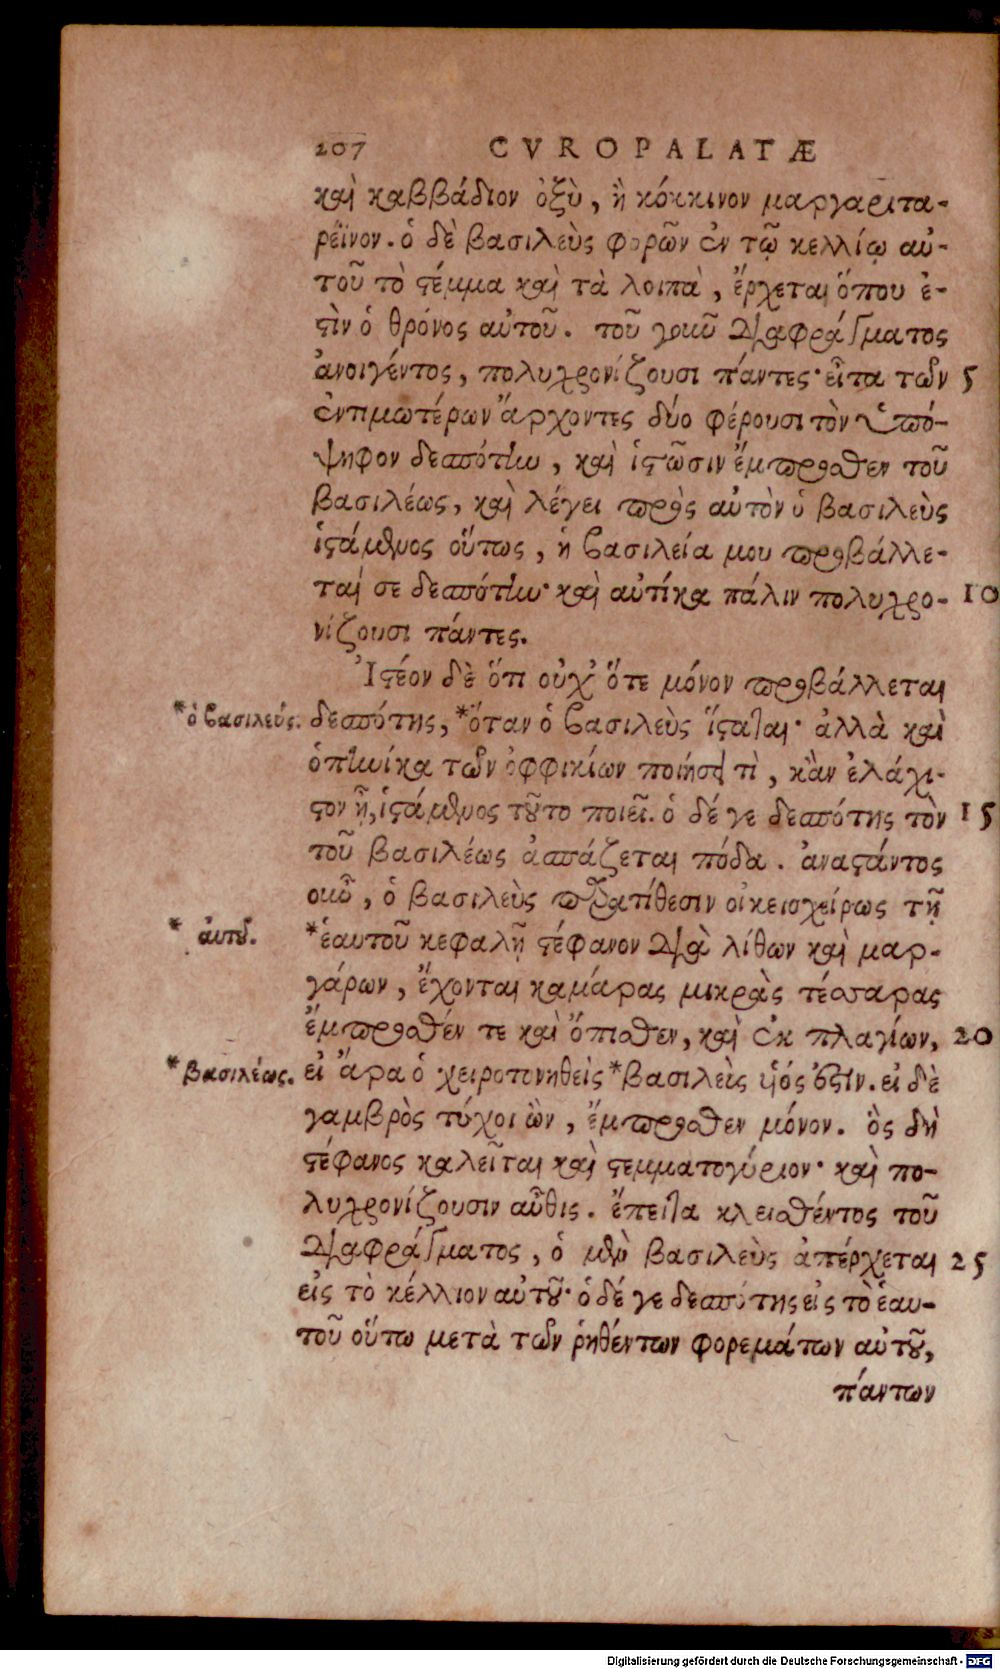 207 CVROPALATÆ
καὶ καββάδιον ὀξὺ, ἢ κόκκινον μαργαριτα-
ρέϊνον. ὁ δὲ βασιλεὺς φορῶν ἐν τῷ κελλίῳ αὐ-
τοῦ τὸ στέμμα καὶ τὰ λοιπὰ, ἔρχεται ὅπου ἐ-
στὶν ὁ θρόνος αὐτοῦ. τοῦ γοῦν διαφράγματος
ἀνοιγέντος, πολυχρονίζουσι πάντες· εἶτα τῶν 5
ἐντιμωτέρων ἄρχοντες δύο φέρουσι τὸν ὑπό-
ψηφον δεσπότην, καὶ ἱστῶσιν ἔμπροσθεν τοῦ
βασιλέως, καὶ λέγει πρὸς αὐτὸν ὁ βασιλεὺς
ἱστάμενος οὕτως, ἡ βασιλεία μου προβάλλε-
ταί σε δεσπότην· καὶ αὐτίκα πάλιν πολυχρο- 10
νίζουσι πάντες.
Ἰστέον δὲ ὅτι οὐχ ὅτε μόνον προβάλλεται
*ὁ βασιλεύς. δεσπότης, *ὅταν ὁ βασιλεὺς ἵσταται· ἀλλὰ καὶ
ὁπηνίκα τῶν ὀφφικίων ποιήσῃ τὶ, κἂν ἐλάχι-
στον ᾖ, ἱστάμενος τοῦτο ποιεῖ. ὁ δέ γε δεσπότης τὸν 15
τοῦ βασιλέως ἀσπάζεται πόδα. ἀναστάντος
οὖν, ὁ βασιλεὺς περιτίθεσιν οἰκειοχείρως τῇ
* αὐτοῦ. *ἑαυτοῦ κεφαλῇ στέφανον διὰ λίθων καὶ μαρ-
γάρων, ἔχονται καμάρας μικρὰς τέσσαρας
ἔμπροσθέν τε καὶ ὄπισθεν, καὶ ἐκ πλαγίων, 20
*βασιλέως. εἰ ἄρα ὁ χειροτονηθεὶς *βασιλεὺς ὑιός ἐστιν. εἰ δὲ
γαμβρὸς τύχοι ὢν, ἔμπροσθεν μόνον. ὃς δὴ
στέφανος καλεῖται καὶ στεμματογύριον· καὶ πο-
λυχρονίζουσιν αὖθις. ἔπειτα κλεισθέντος τοῦ
διαφράγματος, ὁ μὲν βασιλεὺς ἀπέρχεται 25
εἰς τὸ κέλλιον αὐτοῦ· ὁ δέ γε δεσπότης εἰς τὸ ἑαυ-
τοῦ οὕτω μετὰ τῶν ῥηθέντων φορεμάτων αὐτοῦ,
πάντων
Digitalisierung gefördert durch die Deutsche Forschungsgemeinschaft - DFG